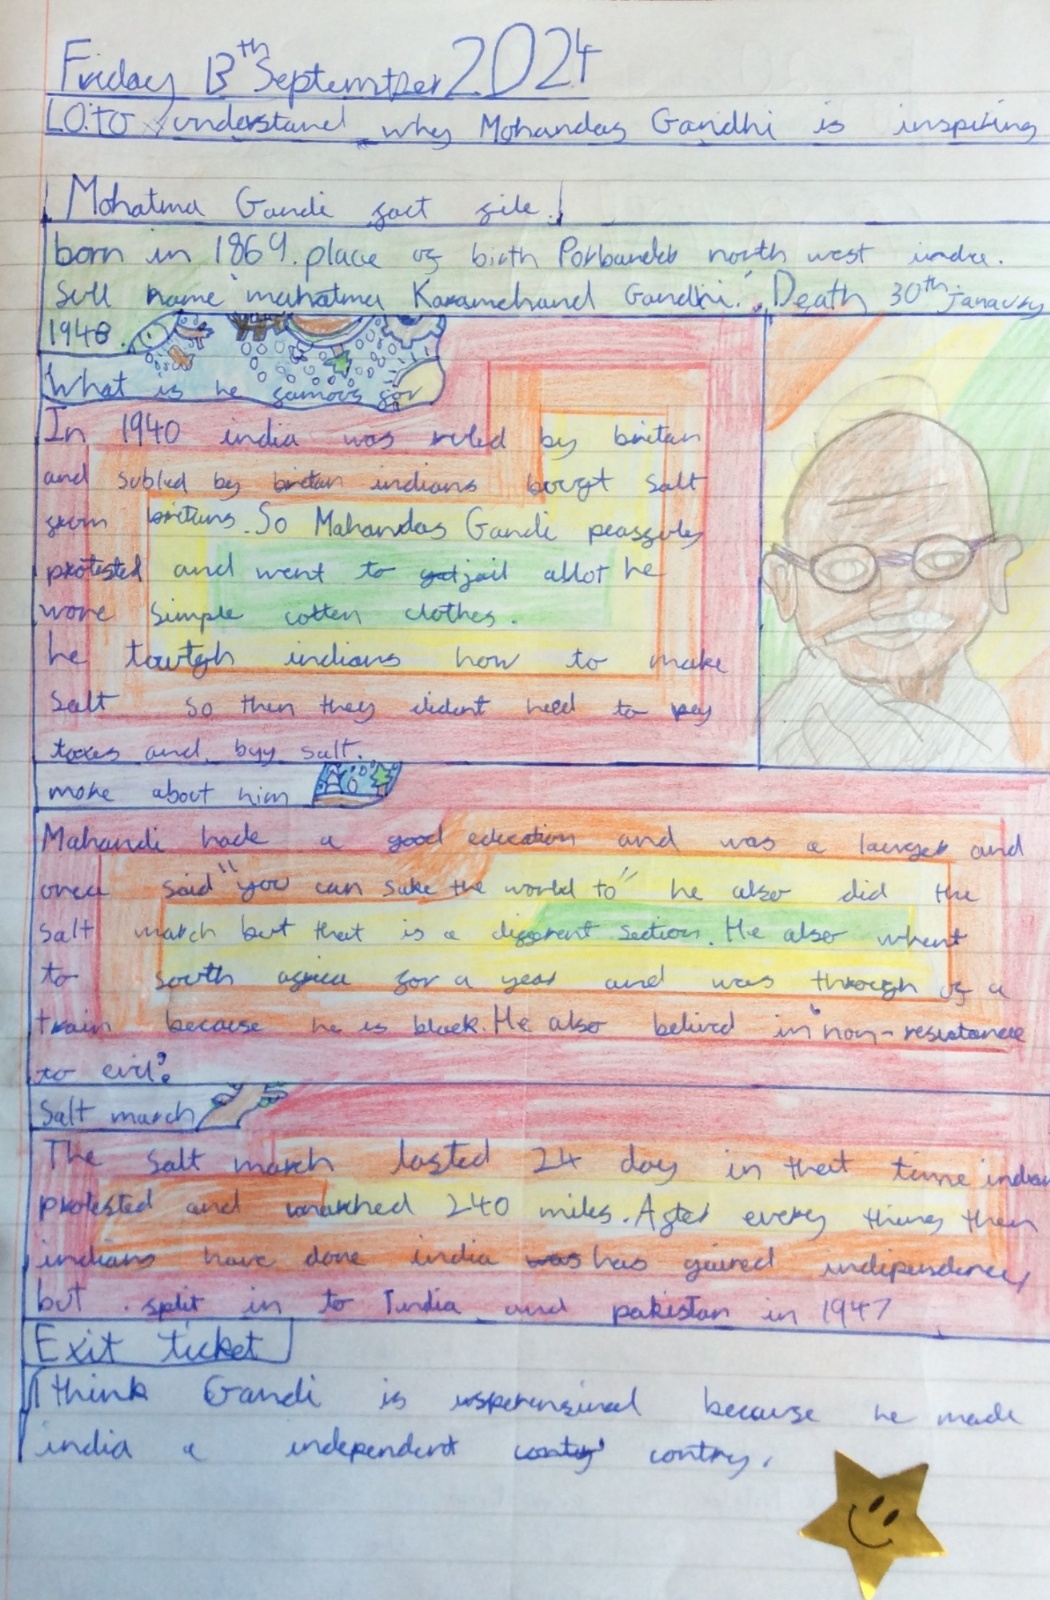 Friday 13th September 2024
LO:TO understand why Mohandas Gandhi is inspiring
Mohatma Gandi fact file.
born in 1869. place of birth Porbandeb north west india.
full name "mahatma Karamchand Gandhi." Death 30th Janaury
1948.
What is he famous for
In 1940 india was ruled by britan
and subled by britan indians bougt salt
from britans. So Mahandas Gandi peassfuley
protested and went to jail allot he
wore simple cotten clothes.
he tawtgh indians how to make
salt so then they dident need to pay
taxes and buy salt.
more about him
Mahandi hade a good education and was a lawyer and
once said "you can sake the world to" he also did the
salt march but that is a different section. He also whent
to south africa for a year and was through of a
train because he is black. He also belived in "non-resistance
to evil".
Salt march
The salt march lasted 24 day in that time indian
protested and marched 240 miles. After every thing then
indians have done india was has gained independency
but split in to India and pakistan in 1947
Exit ticket
I think Gandi is because he made
india a independent contry.